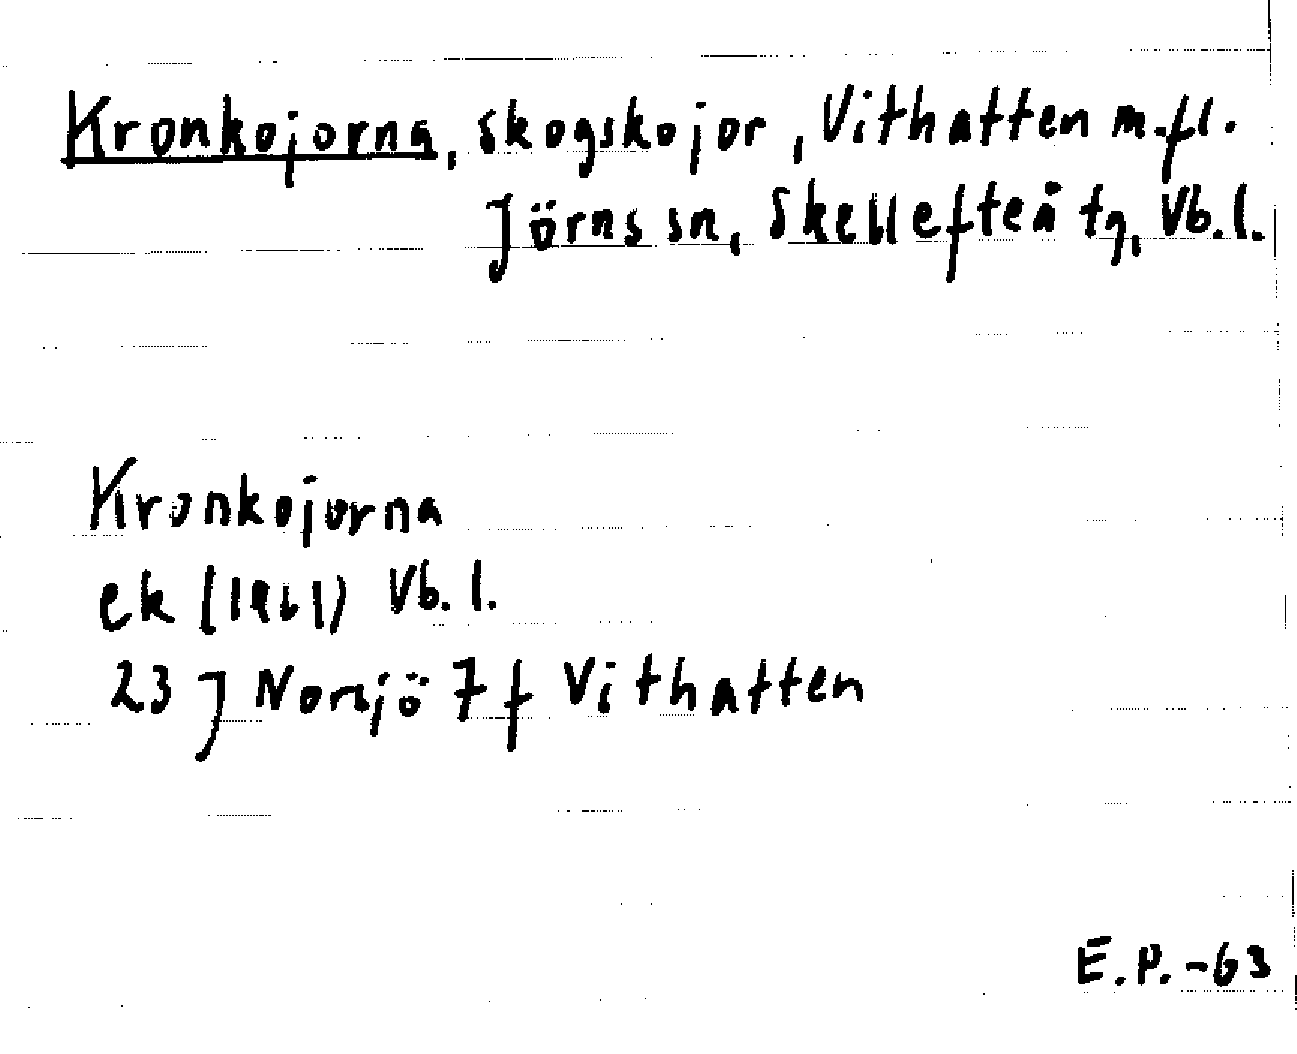 Kronkojorna, skogskojor, Vithatten m.fl.
Jörns sn, Skellefteå tg, Vb.l.
Kronkojorna
ek (1961) Vb.l.
23 J Norsjö 7 f Vithatten
E.P.-63